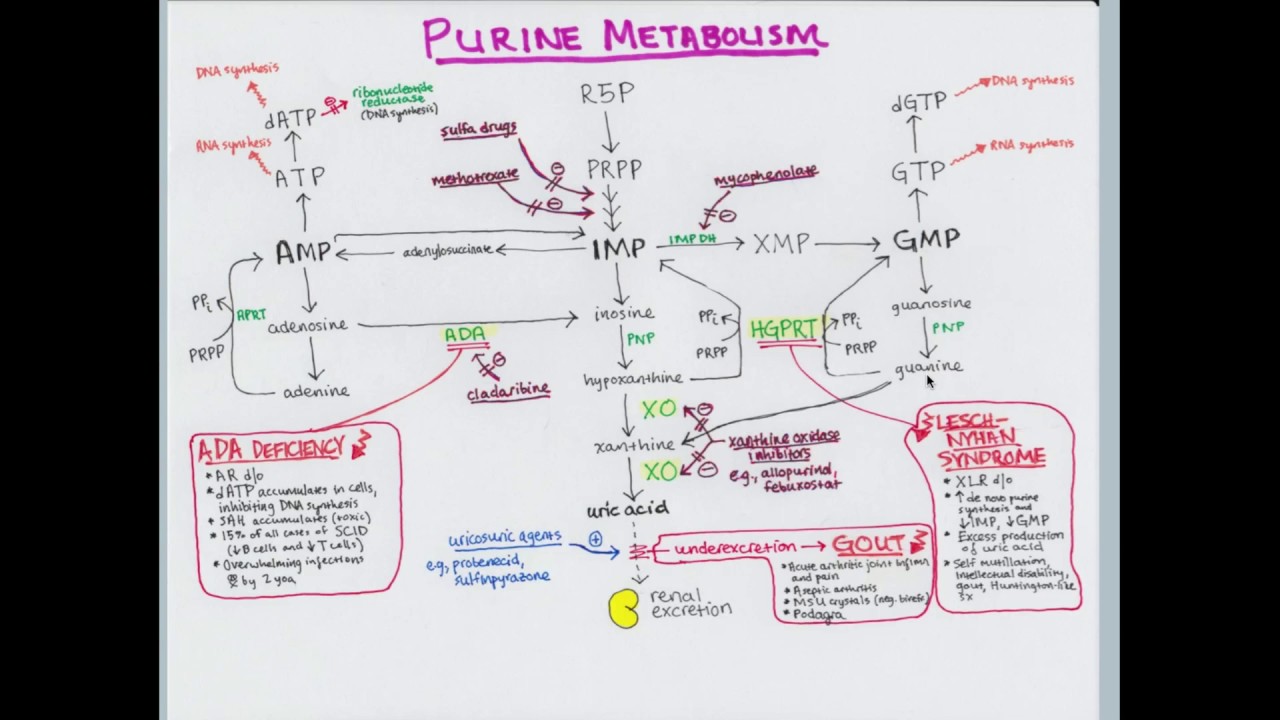 PURINE METABOLISM
DNA synthesis
dATP
⊖
ribonucleotide
reductase
(DNA synthesis)
RNA synthesis
ATP
AMP
adenylosuccinate
PPi
APRT
PRPP
adenosine
adenine
ADA
⊖
cladaribine
R5P
sulfa drugs
⊖
methotrexate
⊖
PRPP
IMP
IMPDH
mycophenolate
⊖
XMP
GMP
GTP
RNA synthesis
dGTP
DNA synthesis
inosine
PNP
hypoxanthine
PPi
PRPP
HGPRT
PPi
PRPP
guanosine
PNP
guanine
XO
⊖
xanthine
XO
⊖
xanthine oxidase
inhibitors
e.g., allopurinol,
febuxostat
uric acid
uricosuric agents
⊕
e.g., probenecid,
sulfinpyrazone
renal
excretion
underexcretion → GOUT
* Acute arthritic joint inflmn
and pain
* Aseptic arthritis
* MSU crystals (neg. birefr.)
* Podagra
ADA DEFICIENCY
* AR d/o
* dATP accumulates in cells,
inhibiting DNA synthesis
* SAH accumulates (toxic)
* 15% of all cases of SCID
(↓B cells and ↓T cells)
* Overwhelming infections
by 2 yoa
LESCH-
NYHAN
SYNDROME
* XLR d/o
* ↑ de novo purine
synthesis and
↓IMP, ↓GMP
* Excess production
of uric acid
* Self mutillation,
intellectual disability,
gout, Huntington-like
sx